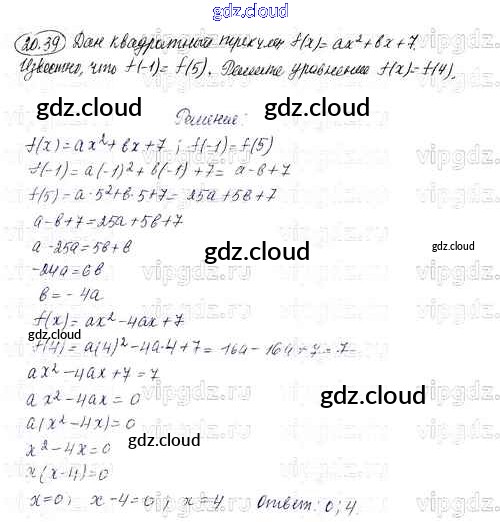 gdz.cloud
20.39 Дан квадратный трехчлен f(x) = ax² + bx + 7.
Известно, что f(-1) = f(5). Решите уравнение f(x) = f(4).
gdz.cloud gdz.cloud
Решение:
f(x) = ax² + bx + 7 ; f(-1) = f(5)
f(-1) = a(-1)² + b(-1) + 7 = a - b + 7
f(5) = a · 5² + b · 5 + 7 = 25a + 5b + 7
a - b + 7 = 25a + 5b + 7
a - 25a = 5b + b
gdz.cloud gdz.cloud
-24a = 6b
b = - 4a
f(x) = ax² - 4ax + 7
gdz.cloud
f(4) = a(4)² - 4a · 4 + 7 = 16a - 16a + 7 = 7
ax² - 4ax + 7 = 7
ax² - 4ax = 0
gdz.cloud
a(x² - 4x) = 0
x² - 4x = 0
gdz.cloud
x(x - 4) = 0
x = 0 ; x - 4 = 0 ; x = 4 Ответ: 0; 4